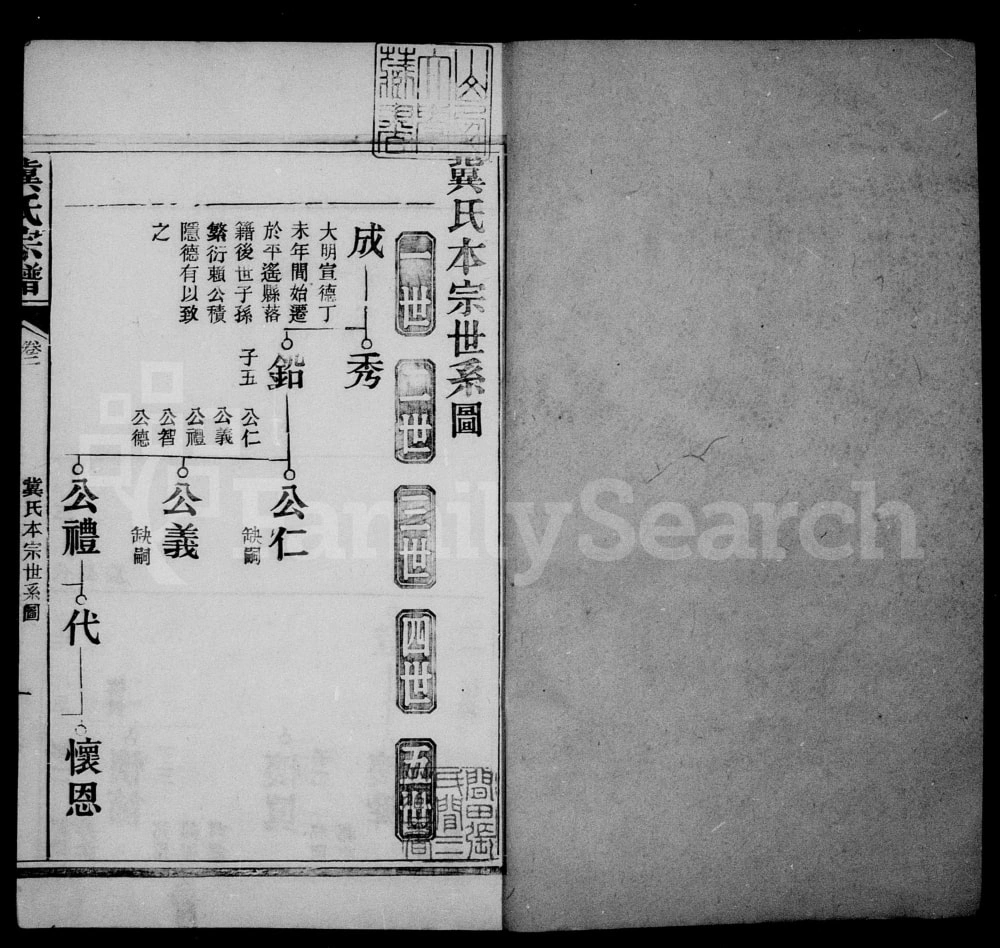 冀氏本宗世系圖
一世
二世
三世
四世
五世
成
秀
大明宣德丁
未年間始遷
於平遙縣落
籍後世子孫
繁衍賴公積
隱德有以致
之
鉛
子五
公仁
公義
公禮
公智
公德
公仁
缺嗣
公義
缺嗣
公禮
代
懷恩
冀氏宗譜
卷二
冀氏本宗世系圖
一
FamilySearch